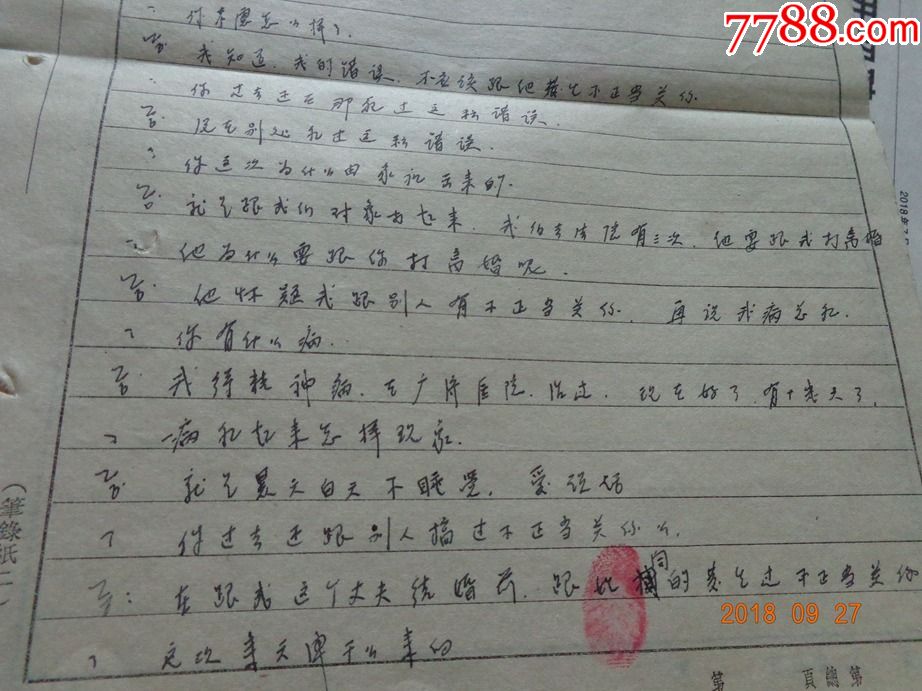 7788.com
你东愿怎么样?
答 我知道,我的错误,不应该跟他发生不正当关係
? 你过去还在那犯过这种错误.
答 没在别处犯过这种错误.
? 你这次为什么由家
答 就是跟我们对象打起来,我们去法院有三次,他要跟我打离婚
? 他为什么要跟你打离婚呢.
答 他怀疑我跟别人有不正当关係. 再说我病总犯.
? 你有什么病.
答 我得精神病,在广济医院,治过,现在好了,有十几天了.
? 病犯起来怎样现象.
答 就是黑天白天不睡觉,爱说话
? 你过去还跟别人搞过不正当关係么.
答: 在跟我这个丈夫结婚前,跟 同 的发生过不正当关係
? 这次来天津干么来的
(筆錄紙二)
2018 09 27
第 頁 總 第